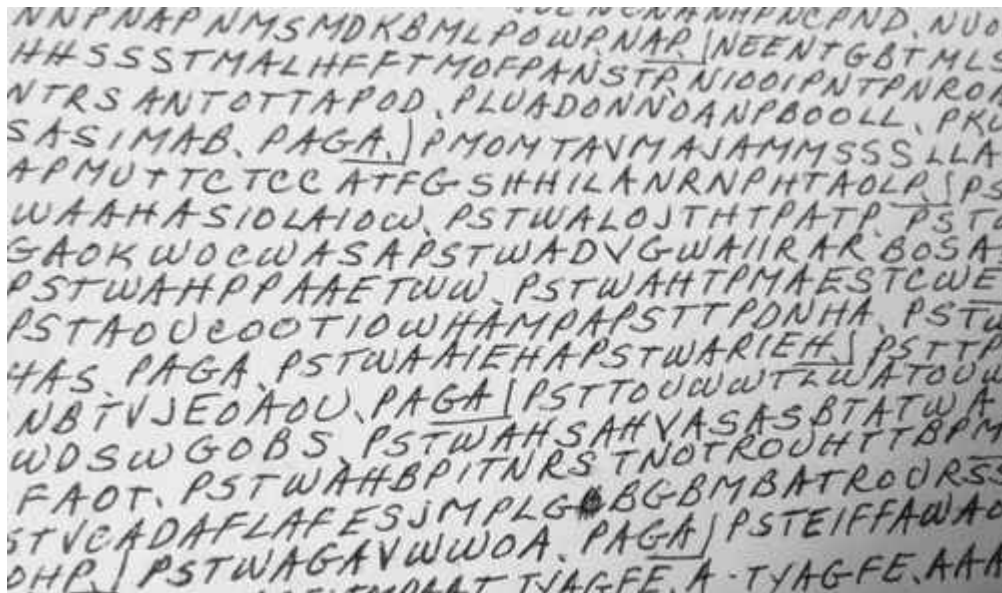 NNPNAPNMSMDKBMLPOWP.NAP. NEENTGBTMLS
HHSSSSTMALHFFTMOFPANSTP. NIOOIPNTPNROA
NTRS ANTOTTAPOD. PLUADONNOANPBOOLL. PKU
SASIMAB. PAGA. PMOMTAVMAJAMMSSSLLA
APMUTTCTCC ATFGSHHILANRNPHTAOLP. PS
WAAHASIOLAIOW. PSTWALOJTHTPATP. PST
GAOK WOCWASAPSTWADVGWAIIRAR BOSA
PSTWAHPPAAETWW. PSTWAHTPMAESTCWE
PSTAOUCOOTIOWHAMPAPSTTPDNHA. PSTW
HAS. PAGA. PSTWAAIEHAPSTWARIEH. PSTTP
NBTVJEOAOU. PAGA PSTTOUWWTLWATOUW
WDSWGOBS. PSTWAHSAHVASASBTATWA
FAOT. PSTWAHBPITNRS TNOTROUHTTBPM
STVCADAFLAFESJMPLG BGBMBATROURSS
OHP. PSTWAGAVWWOA. PAGA PSTEIFFAWAO
TYAGFE. A-TYAGFE.AAA